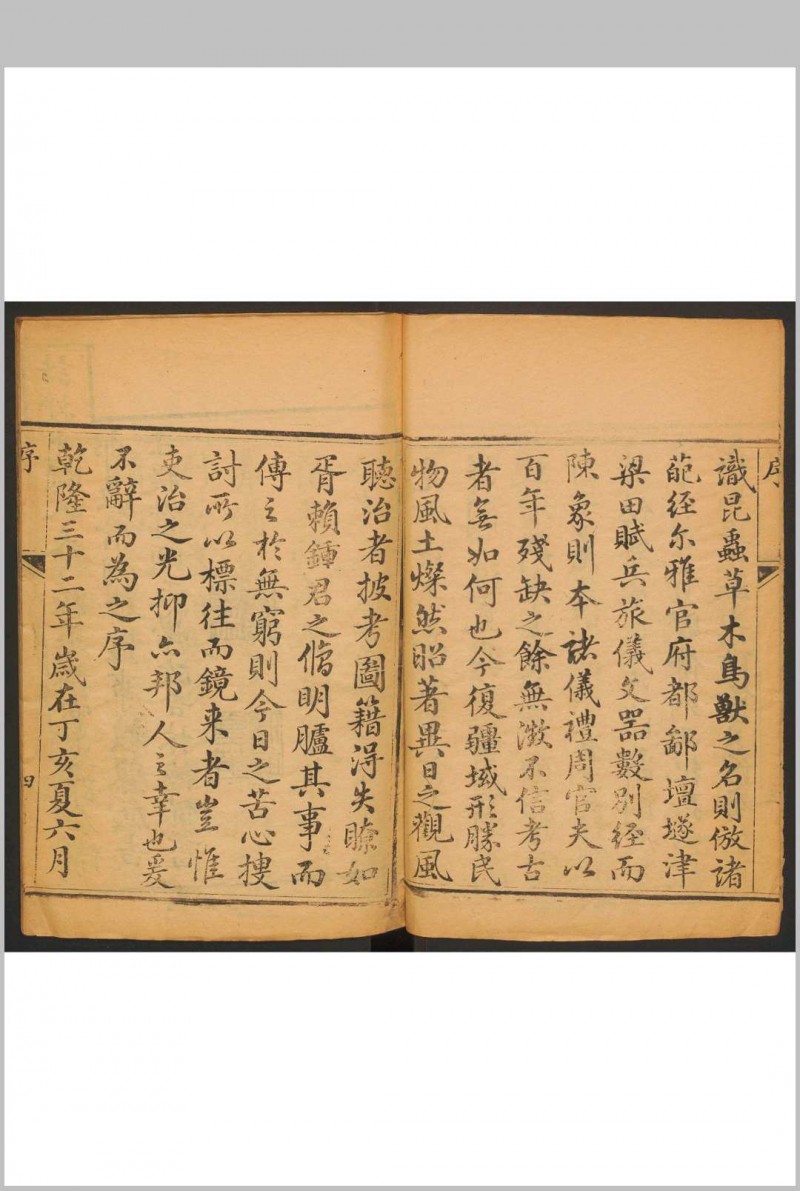 序
識昆蟲草木鳥獸之名則倣諸
葩經尔雅官府都鄙壇墜津
梁田賦兵旅儀文器數別經而
陳象則本諸儀禮周官夫以
百年殘缺之餘無徵不信考古
者無如何也今復疆域形勝民
物風土燦然昭著異日之觀風
聽治者披考圖籍淂失瞭如
胥賴鍾君之脩明臚其事而
傳之於無窮則今日之苦心搜
討所以標往而鏡来者豈惟
吏治之光抑亦邦人之幸也爰
不辭而為之序
乾隆三十二年歲在丁亥夏六月
序
四